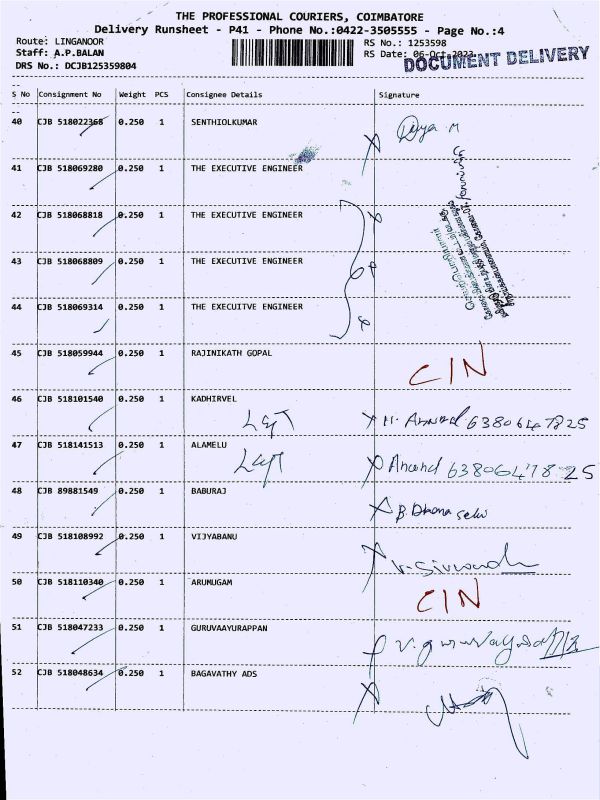 THE PROFESSIONAL COURIERS, COIMBATORE
Delivery Runsheet - P41 - Phone No.:0422-3505555 - Page No.:4
Route: LINGANOOR
RS No.: 1253598
Staff: A.P.BALAN
RS Date: 06-Oct-2023
DOCUMENT DELIVERY
DRS No.: DCJB125359804
S No Consignment No Weight PCS Consignee Details Signature
40 CJB 518022368 0.250 1 SENTHIOLKUMAR
41 CJB 518069280 0.250 1 THE EXECUTIVE ENGINEER
42 CJB 518068818 0.250 1 THE EXECUTIVE ENGINEER
43 CJB 518068809 0.250 1 THE EXECUTIVE ENGINEER
44 CJB 518069314 0.250 1 THE EXECUITVE ENGINEER
45 CJB 518059944 0.250 1 RAJINIKATH GOPAL CIN
46 CJB 518101540 0.250 1 KADHIRVEL
6380647825
47 CJB 518141513 0.250 1 ALAMELU
Anand 6380647825
48 CJB 89881549 0.250 1 BABURAJ
49 CJB 518108992 0.250 1 VIJYABANU
50 CJB 518110340 0.250 1 ARUMUGAM CIN
51 CJB 518047233 0.250 1 GURUVAAYURAPPAN
52 CJB 518048634 0.250 1 BAGAVATHY ADS